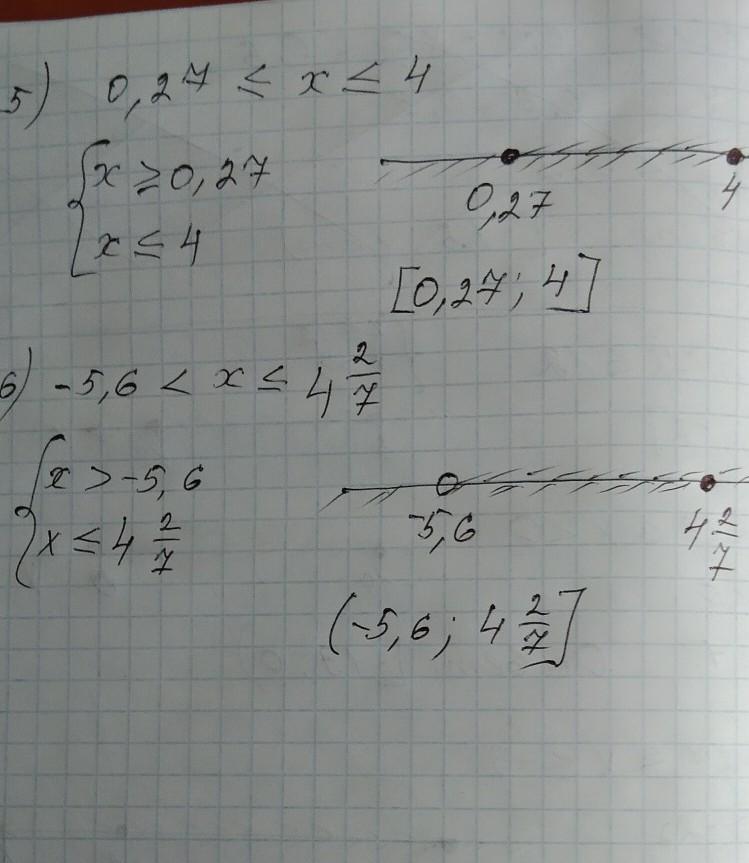 5) 0,27 ≤ x ≤ 4
{x ≥ 0,27
x ≤ 4
0,27 4
[0,27; 4]
6) -5,6 < x ≤ 4 2/7
{x > -5,6
x ≤ 4 2/7
-5,6 4 2/7
(-5,6; 4 2/7]